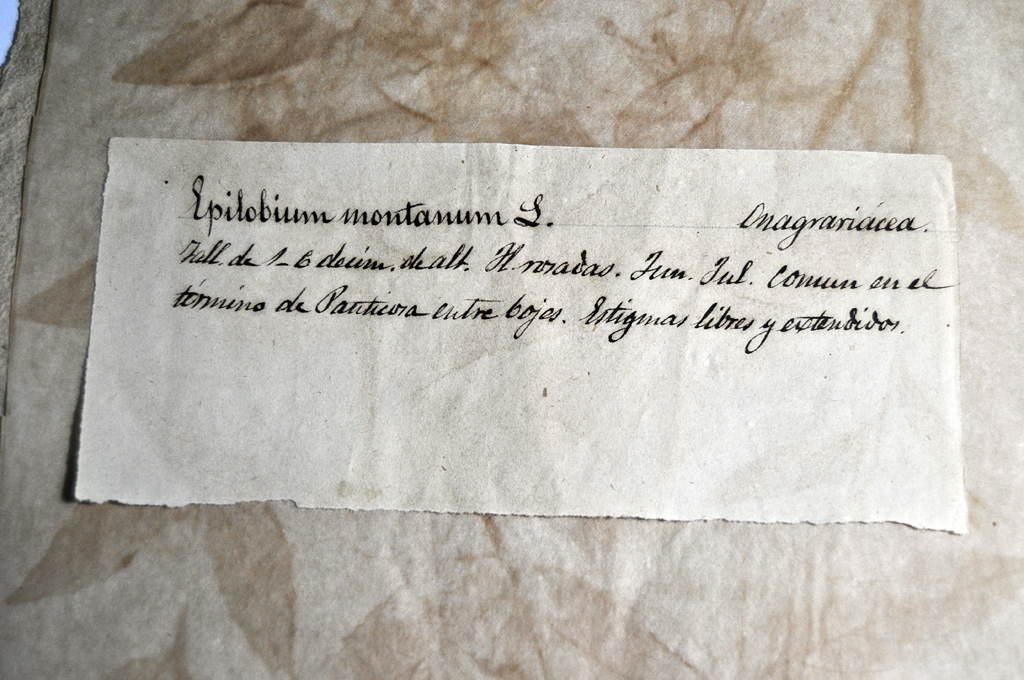 Epilobium montanum L. Onagrariácea.
Tall. de 1-6 decim. de alt. Fl. rosadas. Jun. Jul. Comun en el
término de Panticosa entre bojes. Estigmas libres y extendidos.